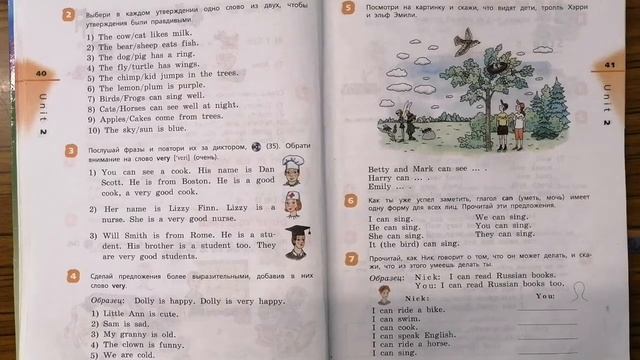 2 Выбери в каждом утверждении одно слово из двух, чтобы
утверждения были правдивыми.
1) The cow/cat likes milk.
2) The bear/sheep eats fish.
3) The dog/pig has a ring.
4) The fly/turtle has wings.
5) The chimp/kid jumps in the trees.
6) The lemon/plum is purple.
7) Birds/Frogs can sing well.
8) Cats/Horses can see well at night.
9) Apples/Cakes come from trees.
10) The sky/sun is blue.
40
Unit 2
3 Послушай фразы и повтори их за диктором, (35). Обрати
внимание на слово very ['veri] (очень).
1) You can see a cook. His name is Dan
Scott. He is from Boston. He is a good
cook, a very good cook.
2) Her name is Lizzy Finn. Lizzy is a
nurse. She is a very good nurse.
3) Will Smith is from Rome. He is a stu-
dent. His brother is a student too. They
are very good students.
4 Сделай предложения более выразительными, добавив в них
слово very.
Образец: Dolly is happy. Dolly is very happy.
1) Little Ann is cute.
2) Sam is sad.
3) My granny is old.
4) The clown is funny.
5) We are cold.
5 Посмотри на картинку и скажи, что видят дети, тролль Хэрри
и эльф Эмили.
41
Unit 2
Betty and Mark can see ... .
Harry can ... .
Emily ... .
6 Как ты уже успел заметить, глагол can (уметь, мочь) имеет
одну форму для всех лиц. Прочитай эти предложения.
I can sing.
He can sing.
She can sing.
It (the bird) can sing.
We can sing.
You can sing.
They can sing.
7 Прочитай, как Ник говорит о том, что он может делать, и ска-
жи, что из этого умеешь делать ты.
Образец: Nick: I can read Russian books.
You: I can read Russian books too.
Nick:
You:
I can ride a bike.
I can swim.
I can cook.
I can speak English.
I can ride a horse.
I can sing.